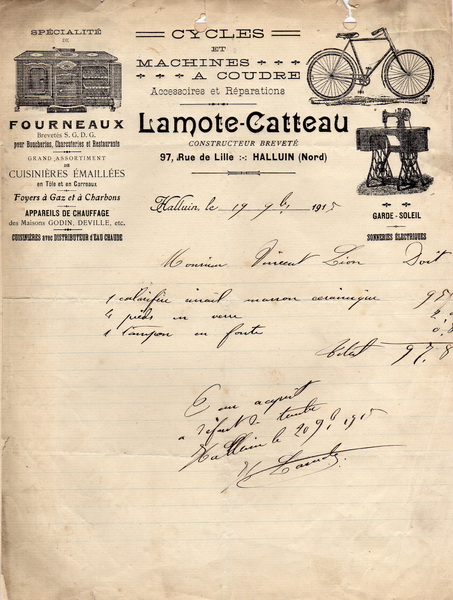 SPÉCIALITÉ
DE
FOURNEAUX
Brevetés S. G. D. G.
pour Boucheries, Charcuteries et Restaurants
GRAND ASSORTIMENT
DE
CUISINIÈRES ÉMAILLÉES
en Tôle et en Carreaux
Foyers à Gaz et à Charbons
APPAREILS DE CHAUFFAGE
des Maisons GODIN, DEVILLE, etc.
CUISINIÈRES avec DISTRIBUTEUR d'EAU CHAUDE
CYCLES
ET
MACHINES
A COUDRE
Accessoires et Réparations
Lamote-Catteau
CONSTRUCTEUR BREVETÉ
97, Rue de Lille :-: HALLUIN (Nord)
GARDE-SOLEIL
SONNERIES ÉLECTRIQUES
Halluin, le 19 9bre 1915
Monsieur Vincent Lion Doit
1 calorifère émail marron céramique 95
4 pieds en verre 2,0
1 tampon en fonte 0,8
Total 97,8
Pour acquit
à défaut de timbre
Halluin le 20 9bre 1915